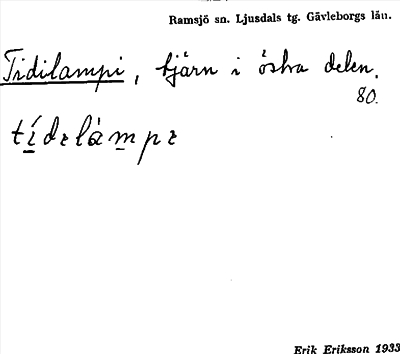 Ramsjö sn. Ljusdals tg. Gävleborgs län.
Tidilampi, tjärn i östra delen.
80.
tídɩlàmpɩ
Erik Eriksson 1933